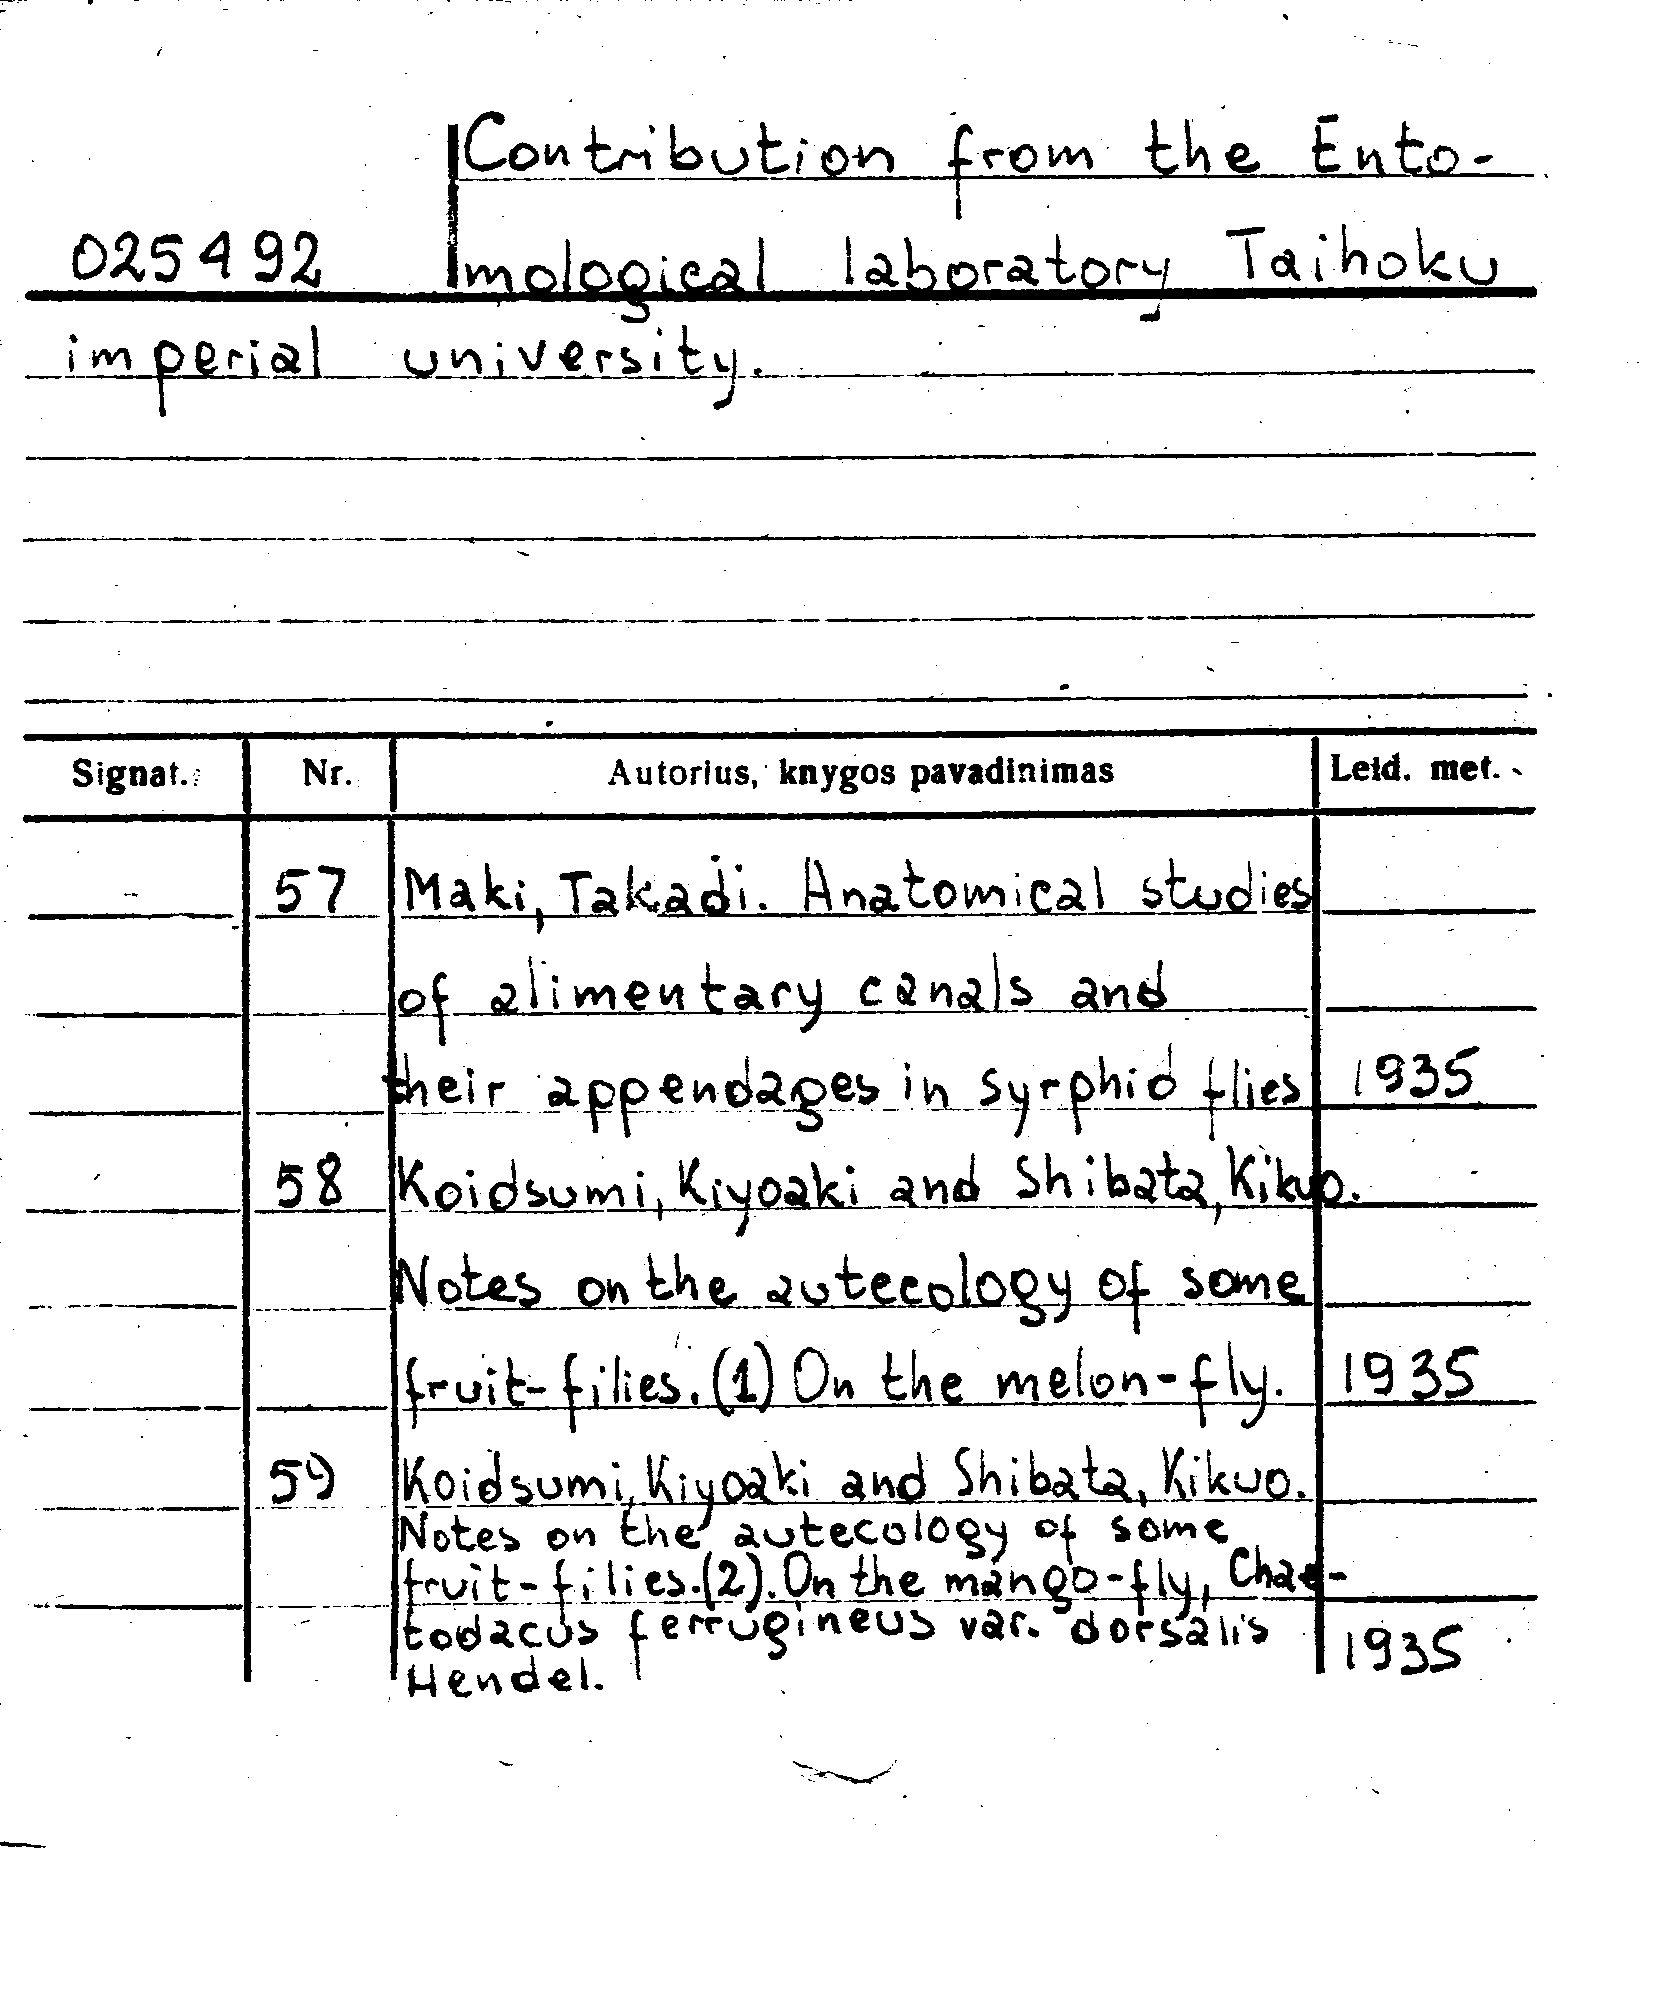 Contribution from the Ento-
025492 mological laboratory Taihoku
imperial university.
Signat. Nr. Autorius, knygos pavadinimas Leid. met.
57 Maki, Takadi. Anatomical studies
of alimentary canals and
their appendages in syrphid flies 1935
58 Koidsumi, Kiyoaki and Shibata, Kikuo.
Notes on the autecology of some
fruit-filies. (1) On the melon-fly. 1935
59 Koidsumi, Kiyoaki and Shibata, Kikuo.
Notes on the autecology of some
fruit-filies. (2). On the mango-fly, Chae-
todacus ferrugineus var. dorsalis
Hendel. 1935